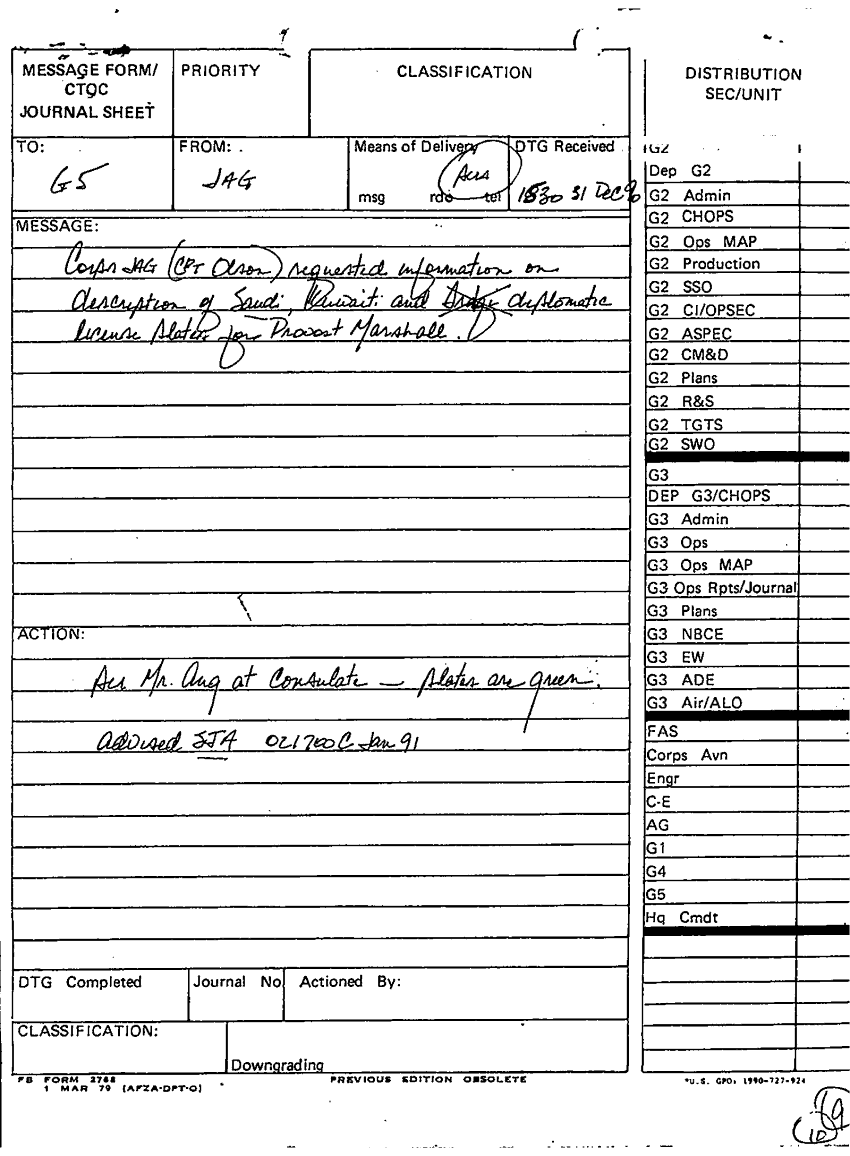 MESSAGE FORM/
CTOC
JOURNAL SHEET
PRIORITY
CLASSIFICATION
TO:
G5
FROM:
JAG
Means of Delivery
msg rdo tel
DTG Received
1530 31 Dec 90
MESSAGE:
Corps JAG (CPT Olson) requested information on
description of Saudi, Kuwaiti and diplomatic
license plates for Provost Marshall.
ACTION:
Mr. Aug at Consulate — plates are green.
advised SJA 021700C Jan 91
DTG Completed
Journal No
Actioned By:
CLASSIFICATION:
Downgrading
FB FORM 2768
1 MAR 79 (AFZA-DPT-O)
PREVIOUS EDITION OBSOLETE
DISTRIBUTION
SEC/UNIT
G2
Dep G2
G2 Admin
G2 CHOPS
G2 Ops MAP
G2 Production
G2 SSO
G2 CI/OPSEC
G2 ASPEC
G2 CM&D
G2 Plans
G2 R&S
G2 TGTS
G2 SWO
G3
DEP G3/CHOPS
G3 Admin
G3 Ops
G3 Ops MAP
G3 Ops Rpts/Journal
G3 Plans
G3 NBCE
G3 EW
G3 ADE
G3 Air/ALO
FAS
Corps Avn
Engr
C-E
AG
G1
G4
G5
Hq Cmdt
*U.S. GPO: 1990-727-924